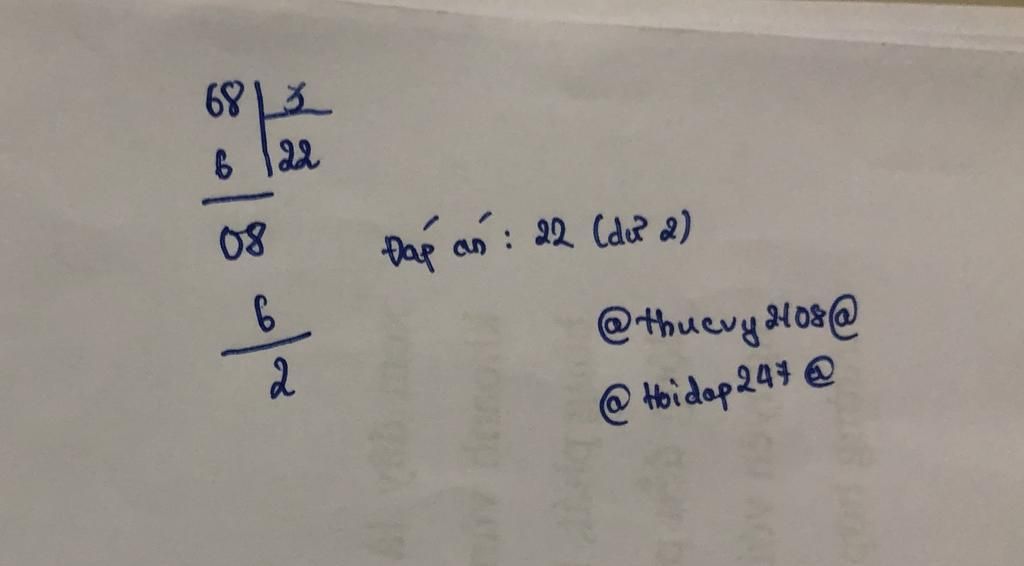 68 | 3
6 | 22
08
6
2
Đáp án : 22 (dư 2)
@thucvy2108@
@Hoidap247@